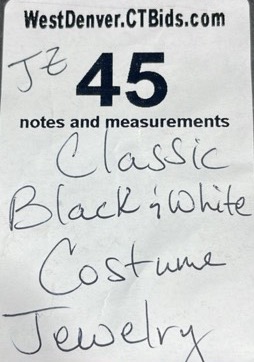 WestDenver.CTBids.com
JZ 45
notes and measurements
Classic
Black & White
Costume
Jewelry